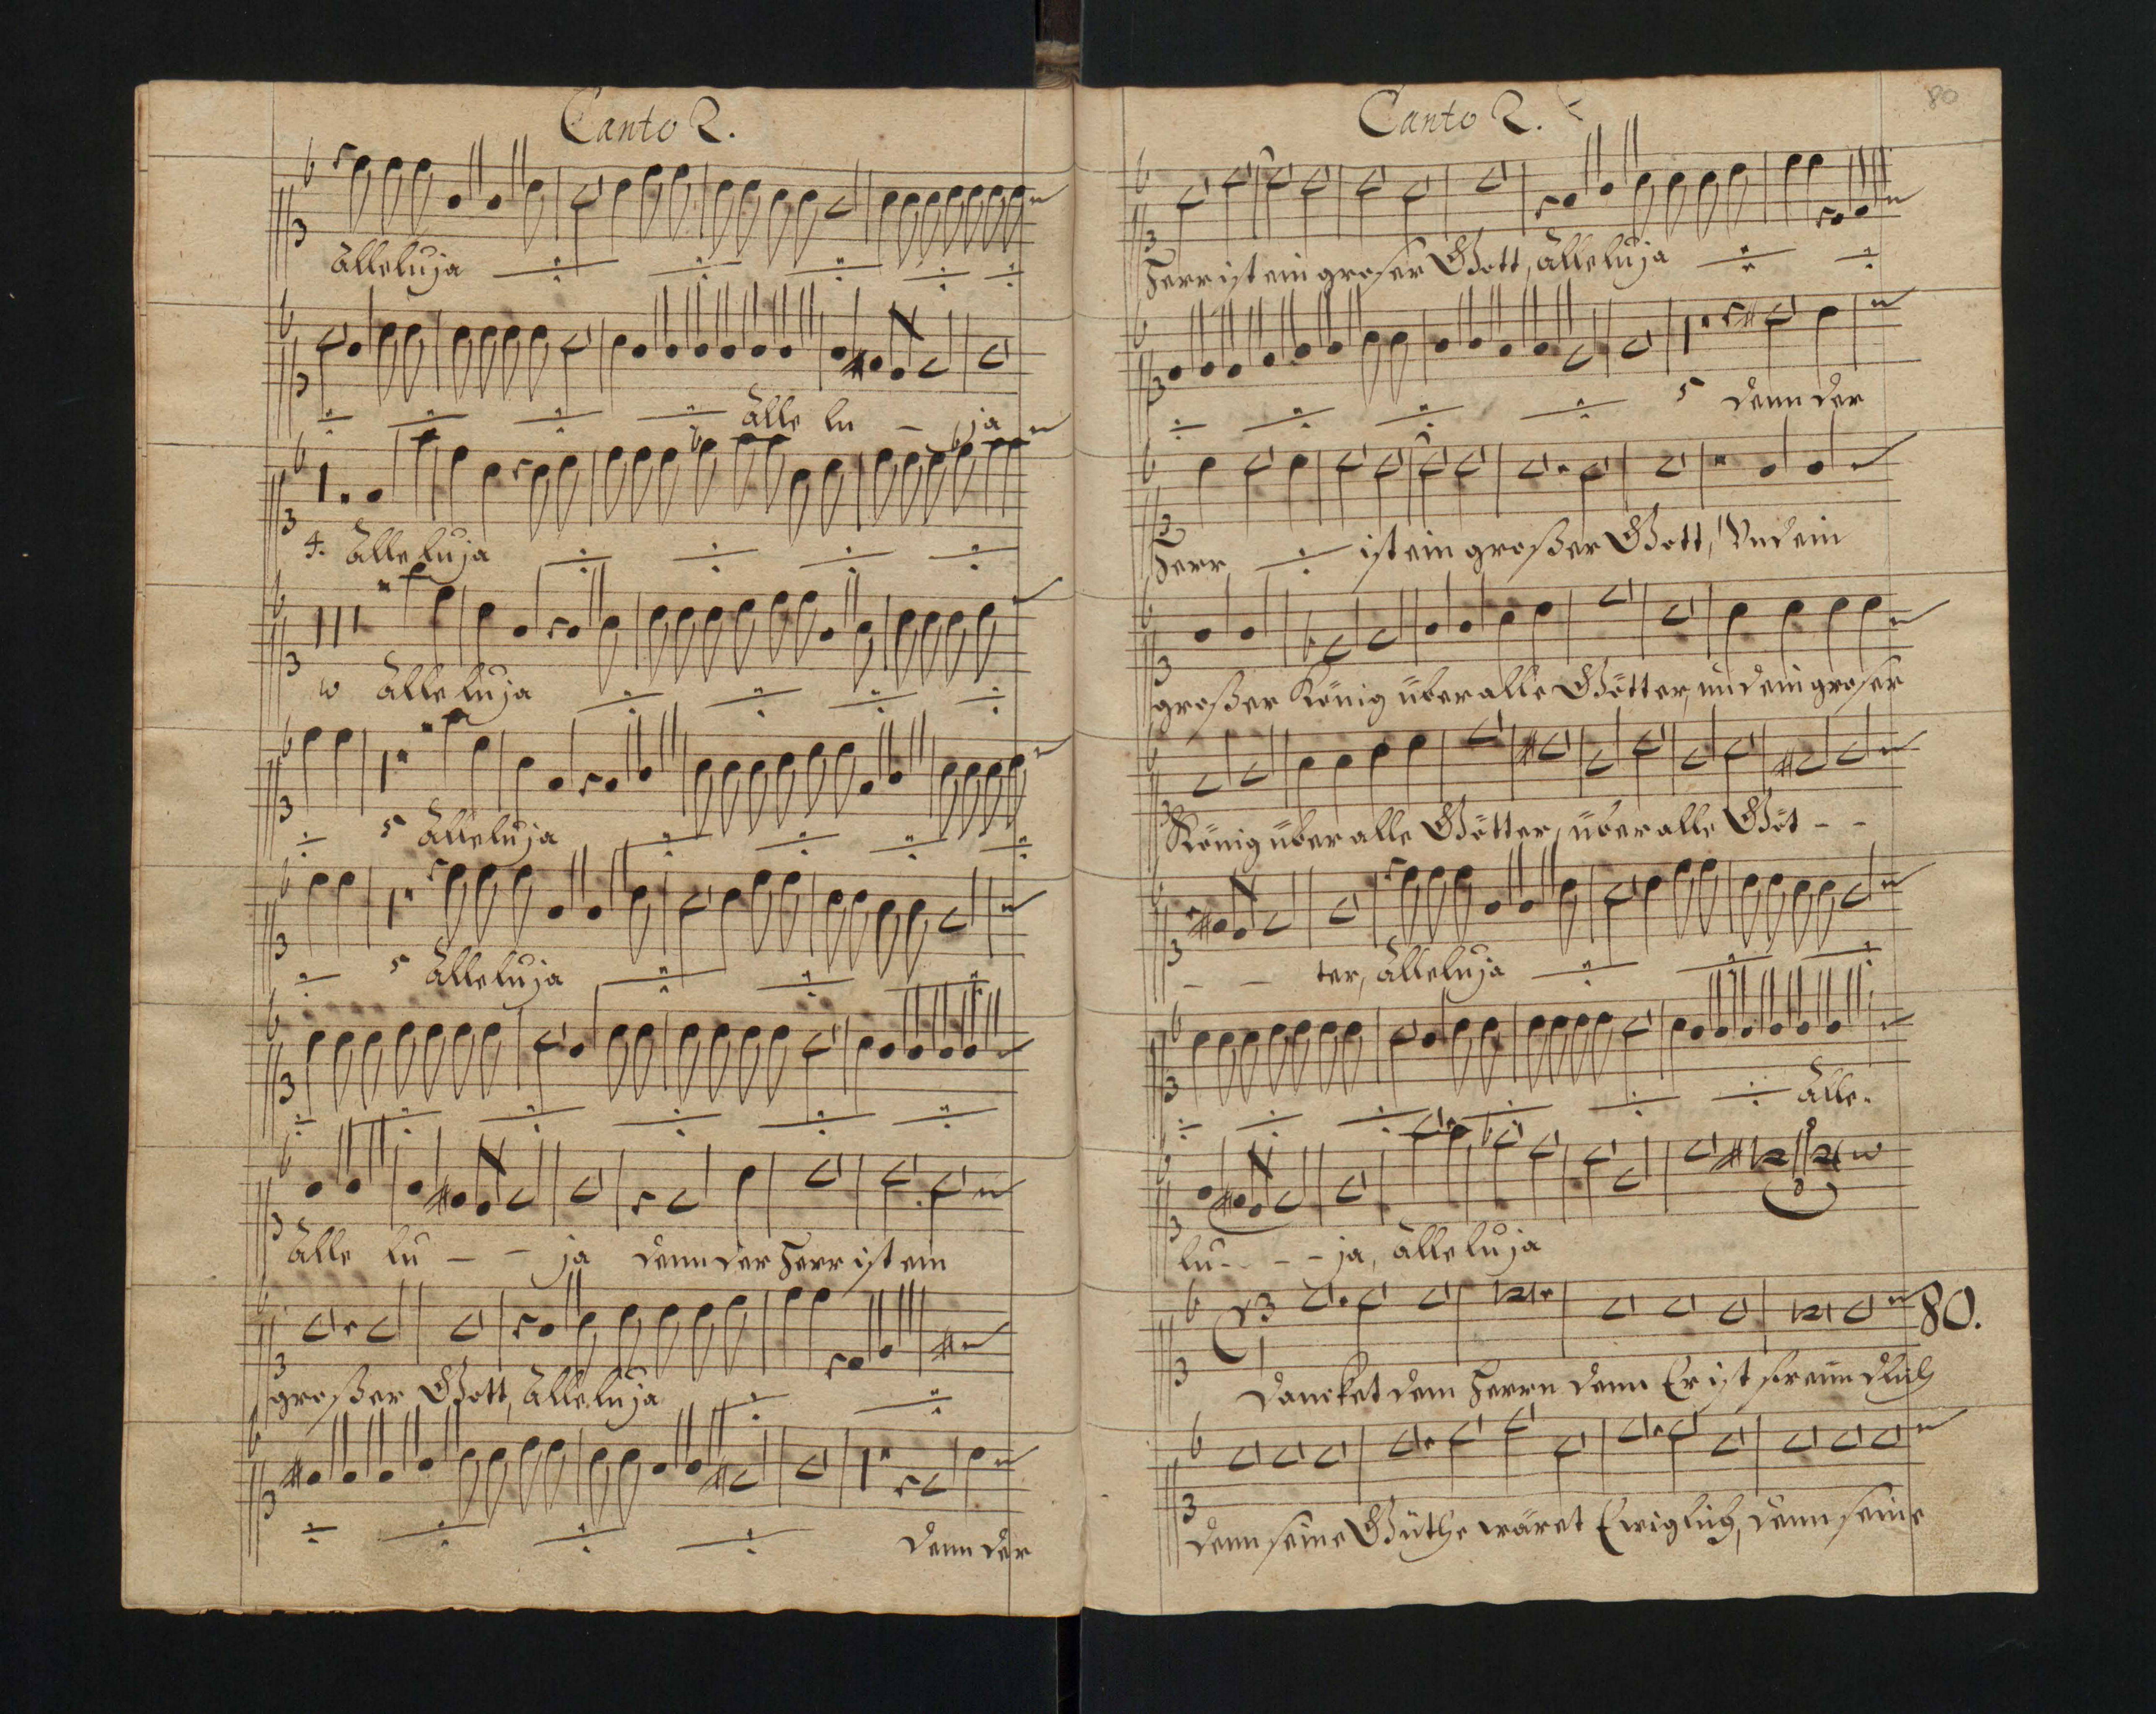 Canto 2.
Alleluja
Alle lu - ja
4. Alleluja
Alleluja
5 Alleluja
5 Alleluja
Alle lu - - ja denn der Herr ist ein
großer Gott, Alleluja
denn der
Canto 2.
80
Herr ist ein großer Gott, Alleluja
5 denn der
Herr ist ein großer Gott, Und ein
großer König über alle Götter, und ein großer
König über alle Götter, über alle Göt - -
- - ter, Alleluja
Alle-
lu - - - ja, Alleluja
80.
Dancket dem Herrn denn Er ist freundlich
denn seine Güthe wäret Ewiglich, denn seine